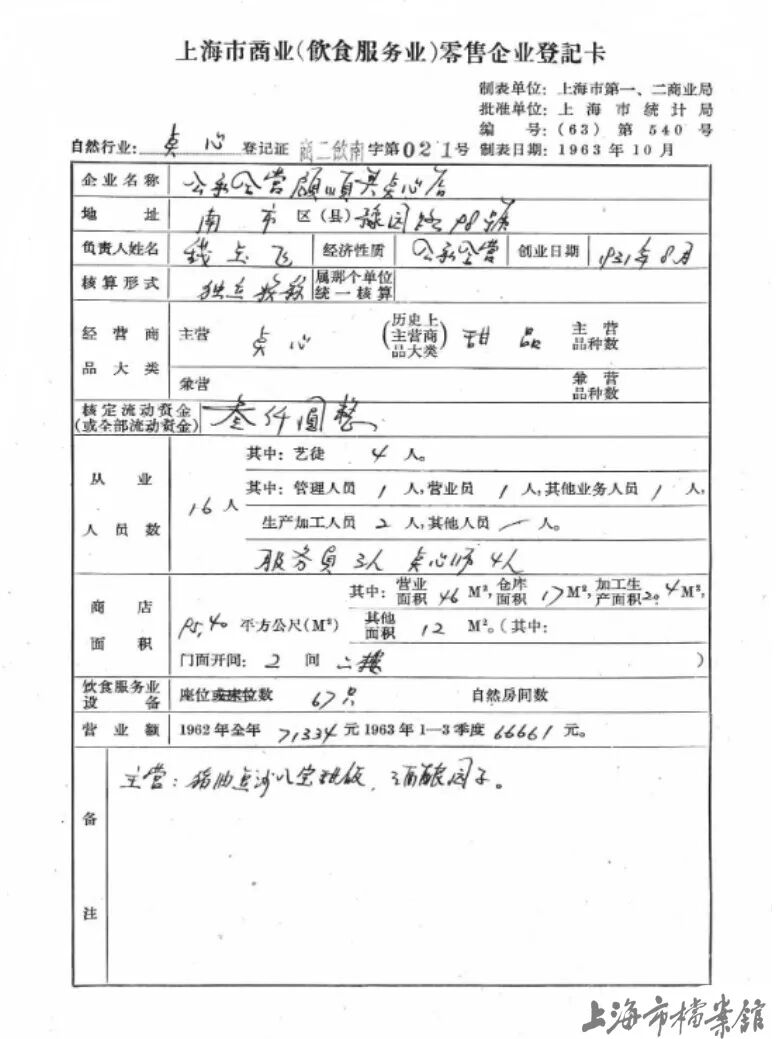 上海市商业(飲食服务业)零售企业登記卡
制表单位：上海市第一、二商业局
批准单位：上海市统计局
编号：(63)第540号
自然行业：点心 登记证 商二飲南 字第021号 制表日期：1963年10月
企业名称 公私合营顧順興点心店
地址 南市区(县)豫园路98號
负责人姓名 钱 飞 经济性质 公私合营 创业日期 1931年8月
核算形式 独立核算 属那个单位统一核算
经营商品大类 主营 点心 (历史上主营商品大类) 甜品 主营品种数
兼营 兼营品种数
核定流动资金(或全部流动资金) 叁仟圆整
从业人员数 16人 其中：艺徒 4 人。
其中：管理人员 1 人，营业员 1 人，其他业务人员 1 人，
生产加工人员 2 人，其他人员 一 人。
服务员3人 点心师4人
商店面积 95.40 平方公尺(M²) 其中：营业面积 46 M²，仓库面积 17 M²，加工生产面积 20.4 M²，
其他面积 12 M²。(其中：
门面开间：2 间 二楼 )
飲食服务业设备 座位或床位数 67只 自然房间数
营业额 1962年全年 71334 元 1963年1—3季度 66661 元。
备注 主营：猪油豆沙八宝甜饭、酒酿园子。
上海市檔案館